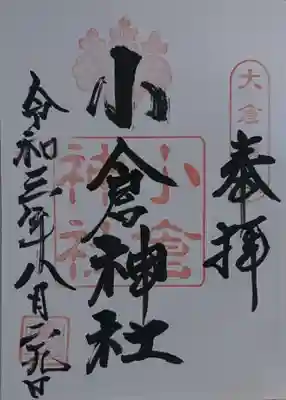 奉拝
大倉
小倉神社
小倉神社
令和三年八月二九日